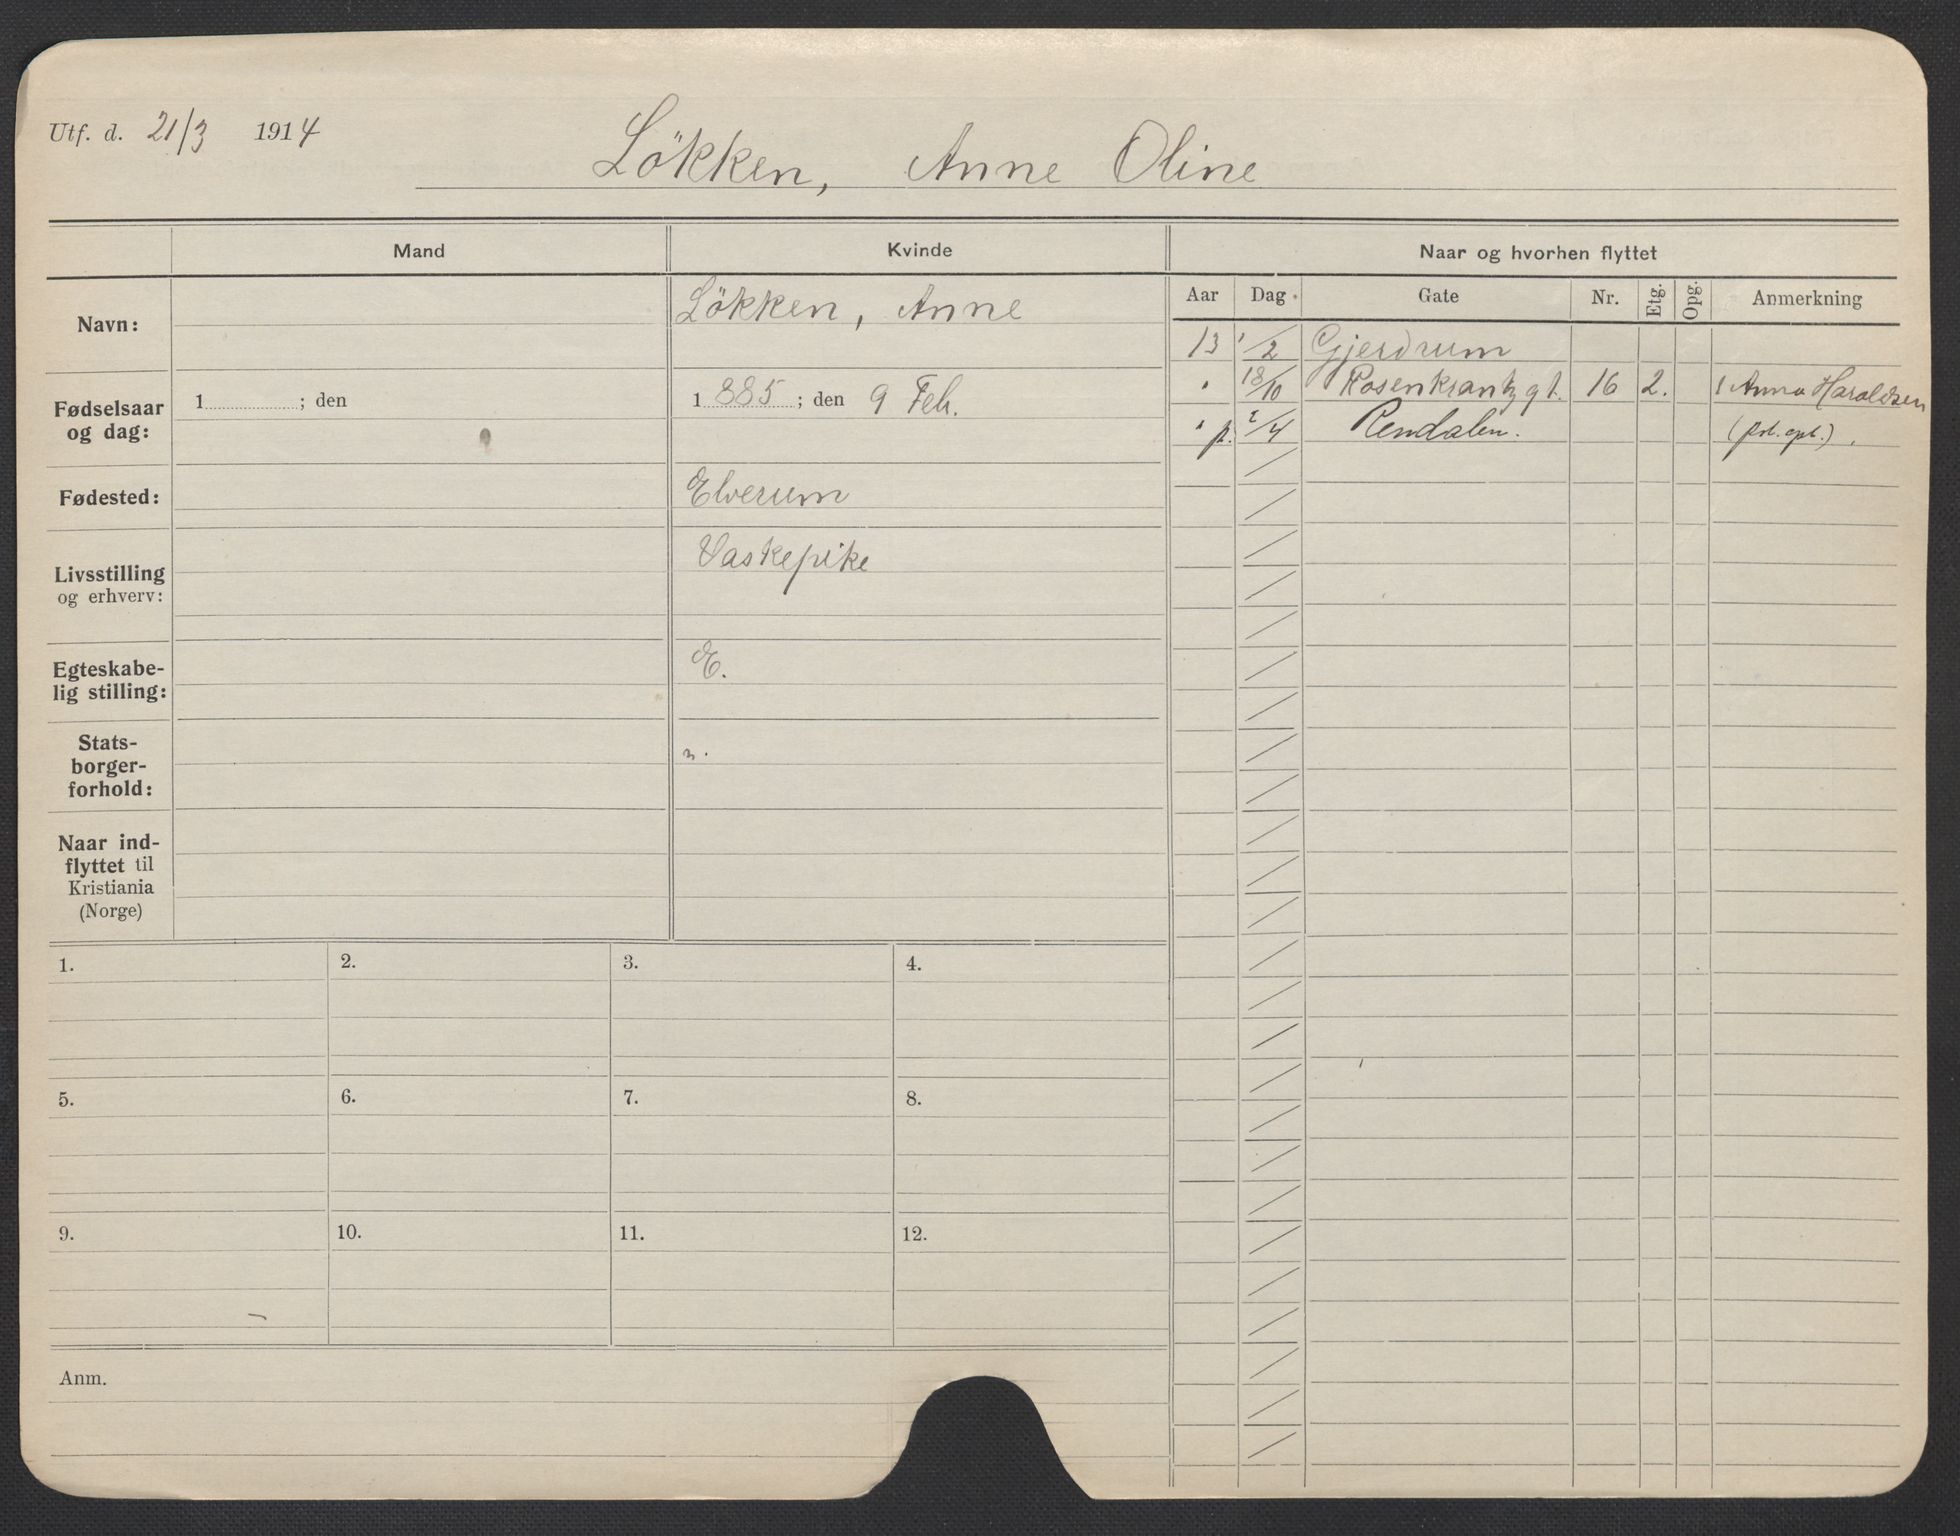 Utf. d. 21/3 1914
Lökken, Anne Oline
Mand
Kvinde
Naar og hvorhen flyttet
Aar Dag Gate Nr. Etg. Opg. Anmerkning
Navn:
Lökken, Anne
Fødselsaar og dag:
1 ; den
1885; den 9 Feb.
Fødested:
Elverum
Livsstilling
og erhverv:
Vaskepike
Egteskabe-
lig stilling:
E.
Stats-
borger-
forhold:
n.
Naar ind-
flyttet til
Kristiania
(Norge)
13 1/2 Gjerdrum
" 18/10 Rosenkrantz gt. 16 2. Anna Haraldsen
" p. 2/4 Rendalen.
1. 2. 3. 4.
5. 6. 7. 8.
9. 10. 11. 12.
Anm.